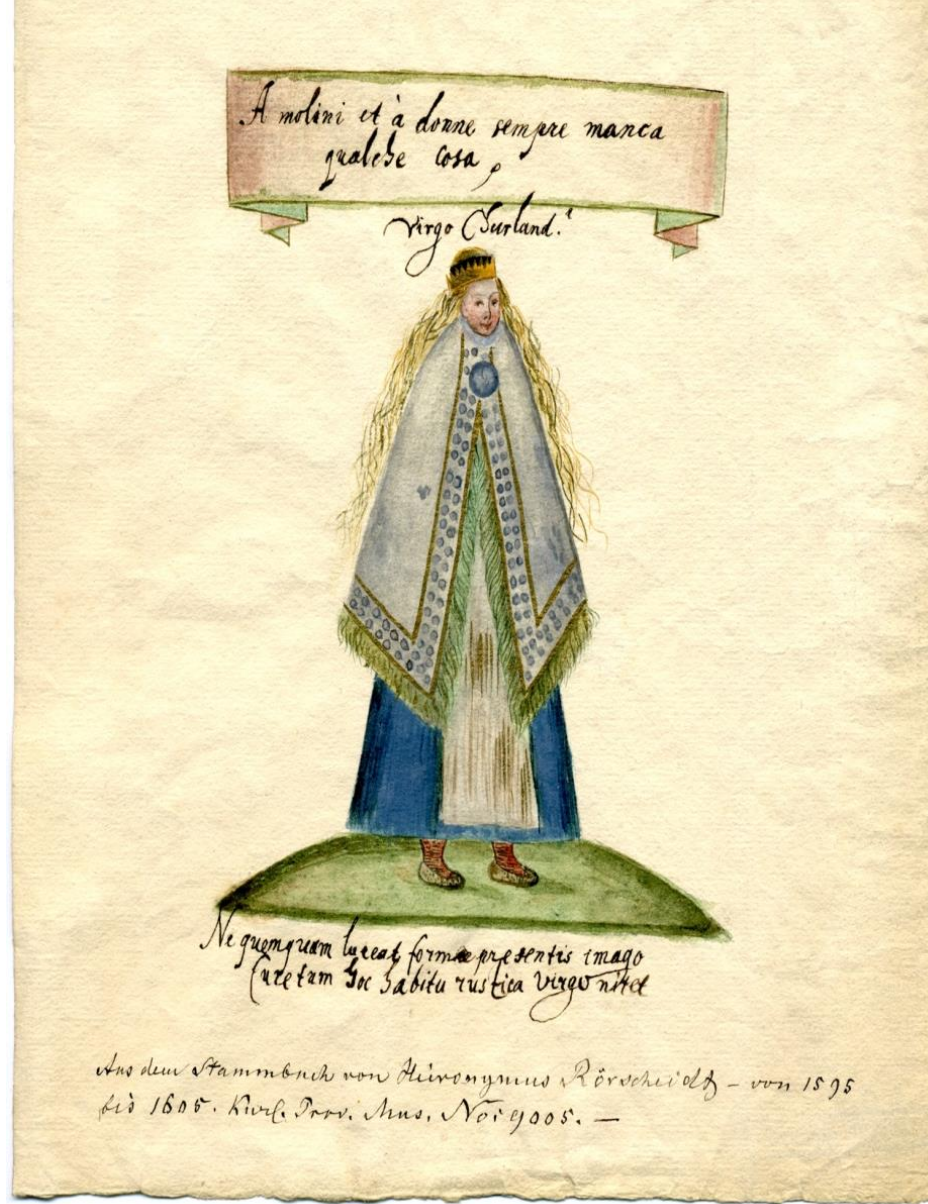 A molini et à donne sempre manca
qualche cosa,
Virgo Churland.
Ne quemquam lateat formae presentis imago
Curetum hoc habitu rustica virgo nitet
Aus dem Stammbuch von Hieronymus Rörscheidt – von 1595
bis 1605. Kurl. Prov. Mus. No: 9005. —